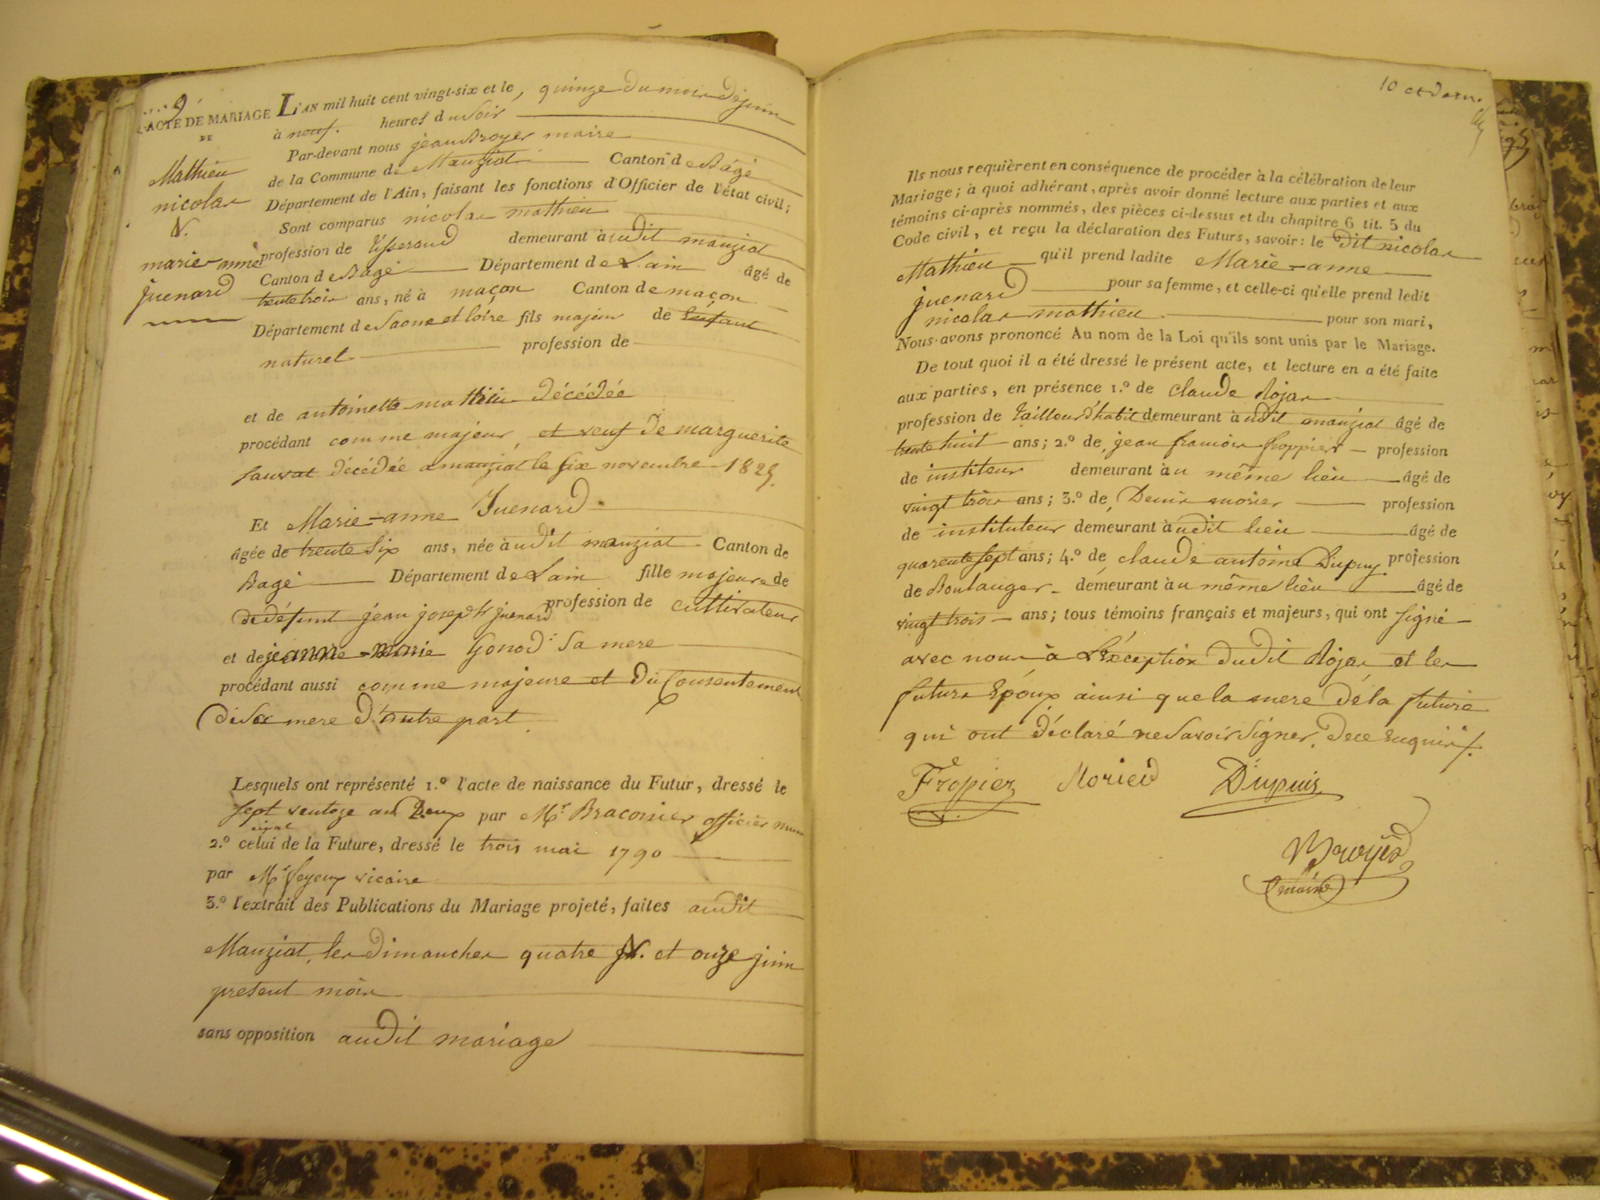 9
ACTE DE MARIAGE
DE
Mathieu
nicolas
N.
marie-anne
juenard
L'AN mil huit cent vingt-six et le, quinze du mois dejuin
à neuf. heures du soir
Par-devant nous jean Broyer maire
de la Commune de Manziat Canton de Bagé
Département de l'Ain, faisant les fonctions d'Officier de l'état civil;
Sont comparus nicolas mathieu
profession de tisserand demeurant àudit manziat
Canton de Bagé Département de L'ain âgé de
trente trois ans, né à maçon Canton de maçon
Département de Saone et loire fils majeur de Lenfant
naturel profession de
et de antoinette mathieu décédée
procédant comme majeur, et veuf de marguerite
sauvat décédée a manziat le six novembre 1825.
Et Marie-anne Juenard
âgée de trente six ans, née àudit manziat Canton de
Bagé Département de L'ain fille majeure de
de défunt jean joseph juenard profession de cultivateur
et de jeanne-marie Gonod sa mere
procédant aussi comme majeure et du Consentement
de sa mere d'autre part
Lesquels ont représenté 1.º l'acte de naissance du Futur, dressé le
sept ventoze an Deux par Mr Braconier officier muni
cipal
2.º celui de la Future, dressé le trois mai 1790
par Mr vicaire
3.º l'extrait des Publications du Mariage projeté, faites audit
Manziat, les dimanches quatre N. et onze juin
present mois
sans opposition audit mariage
10 et
Ils nous requièrent en conséquence de procéder à la célébration de leur
Mariage; à quoi adhérant, après avoir donné lecture aux parties et aux
témoins ci-après nommés, des pièces ci-dessus et du chapitre 6 tit. 5 du
Code civil, et reçu la déclaration des Futurs, savoir: le dit nicolas
Mathieu qu'il prend ladite Marie-anne
juenard pour sa femme, et celle-ci qu'elle prend ledit
nicolas mathieu pour son mari,
Nous avons prononcé Au nom de la Loi qu'ils sont unis par le Mariage.
De tout quoi il a été dressé le présent acte, et lecture en a été faite
aux parties, en présence 1.º de claude Rojas
profession de tailleur d'habit demeurant àudit manziat âgé de
trente huit ans; 2.º de jean francois froppier profession
de instituteur demeurant àu même lieu âgé de
vingt trois ans; 3.º de Denis morier profession
de instituteur demeurant àudit lieu âgé de
quarente sept ans; 4.º de claude antoine Dupuy profession
de Boulanger demeurant àu même lieu âgé de
vingt trois ans; tous témoins français et majeurs, qui ont signé
avec nous à L'exception dudit Rojas et les
futurs Epoux ainsi que la mere dela future
qui ont déclaré ne savoir signer, de ce enquis
Fropier Morier Dupuis
Broyer
maire